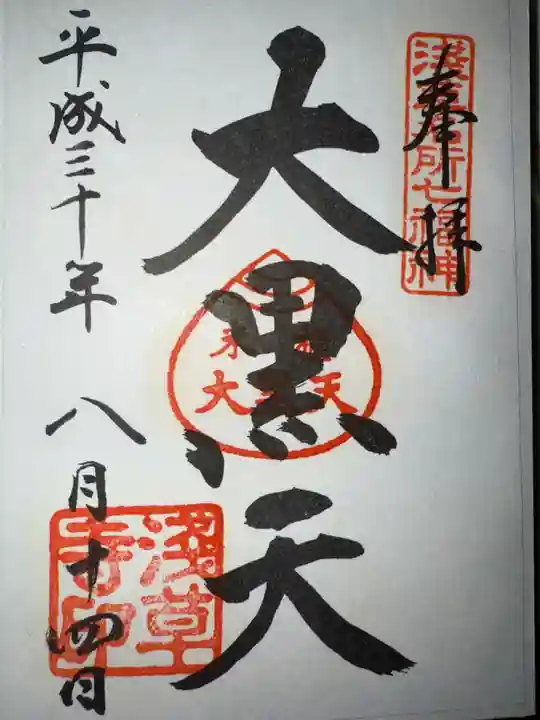 奉拝
浅草名所七福神
大黒天
平成三十年 八月十四日
浅草寺印